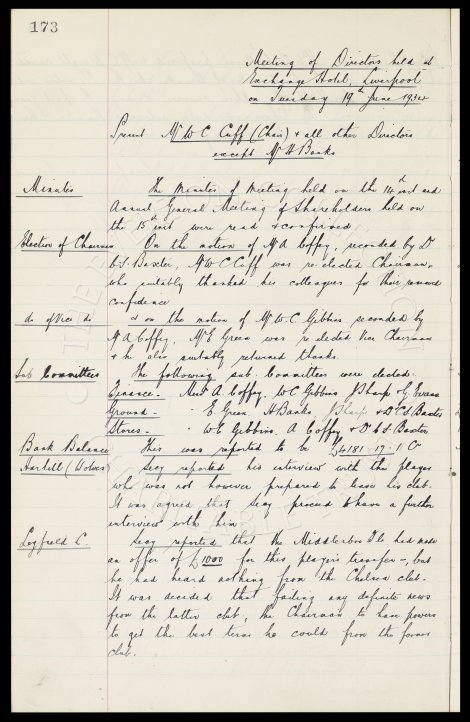 173
Meeting of Directors held at
Exchange Hotel, Liverpool
on Tuesday 19th June 1934
Present Mr W C Cuff (Chair) & all other Directors
except Mr H Banks
Minutes The Minutes of Meeting held on the 14th inst and
Annual General Meeting of Shareholders held on
the 15th inst were read & confirmed
Election of Chairman On the motion of Mr A Coffey, seconded by Dr
C.S. Baxter, Mr W C Cuff was re-elected Chairman,
who suitably thanked his colleagues for their renewed
confidence
do of Vice do & on the motion of Mr W. C. Gibbins seconded by
Mr A Coffey, Mr E Green was re-elected Vice Chairman
& he also suitably returned thanks.
Sub Committees The following sub. Committees were elected.
Finance - Messrs A. Coffey, W C Gibbins J Sharp & G Evans
Ground - " E Green, H Banks, J Sharp & Dr C S Baxter
Stores - " W C Gibbins, A Coffey & Dr C S Baxter
Bank Balance This was reported to be £4181-17-1 Cr
Hartill (Wolves) Secy reported his interview with the player
who was not however prepared to leave his club.
It was agreed that Secy proceed to have a further
interview with him
Leyfield C Secy reported that the Middlesbro F C had made
an offer of £1000 for this player's transfer -, but
he had heard nothing from the Chelsea club.
It was decided that failing any definite news
from the latter club, the Chairman to have powers
to get the best terms he could from the former
club.